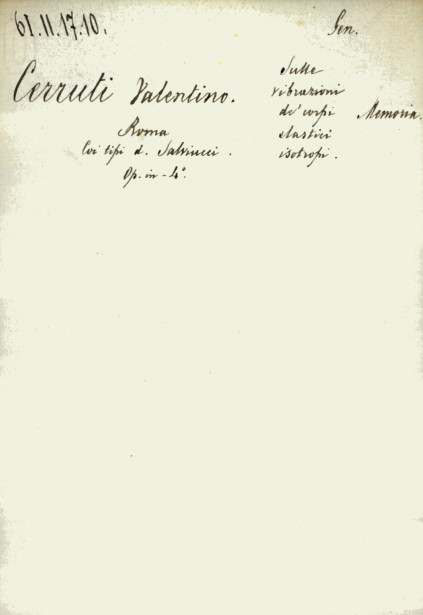 61.II.17.10.
Gen.
Cerruti Valentino.
Sulle
vibrazioni
de' corpi
elastici
isotropi.
Memoria.
Roma
Coi tipi d. Salviucci.
Op. in-4°.